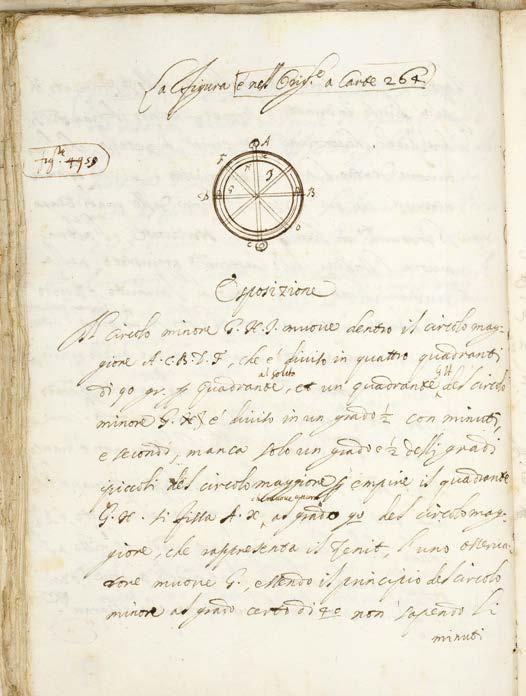 La figura è nell Orig.e a Carte 264
fig.e 49
A
F
H
I
D
G
B
C
O
Esposizione
Il circolo minore G. H. I. muove dentro il circolo mag=
giore A. C. B. D. F, che è diviso in quattro quadranti
al solito
di 90 gr. p quadrante, et un' quadrante del circolo
GH
minore G. H è diviso in un grado ½ con minuti,
e secondi, manca solo un grado e ½ delli gradi
piccoli del circolo maggiore p empire il quadrante
G. H. si fissa A. H al grado 90 del circolo mag=
giore, che rappresenta il Zenit, l'uno osserva=
tore muove G, essendo il principio del circolo
minore al grado certo di non sapendo li
minuti